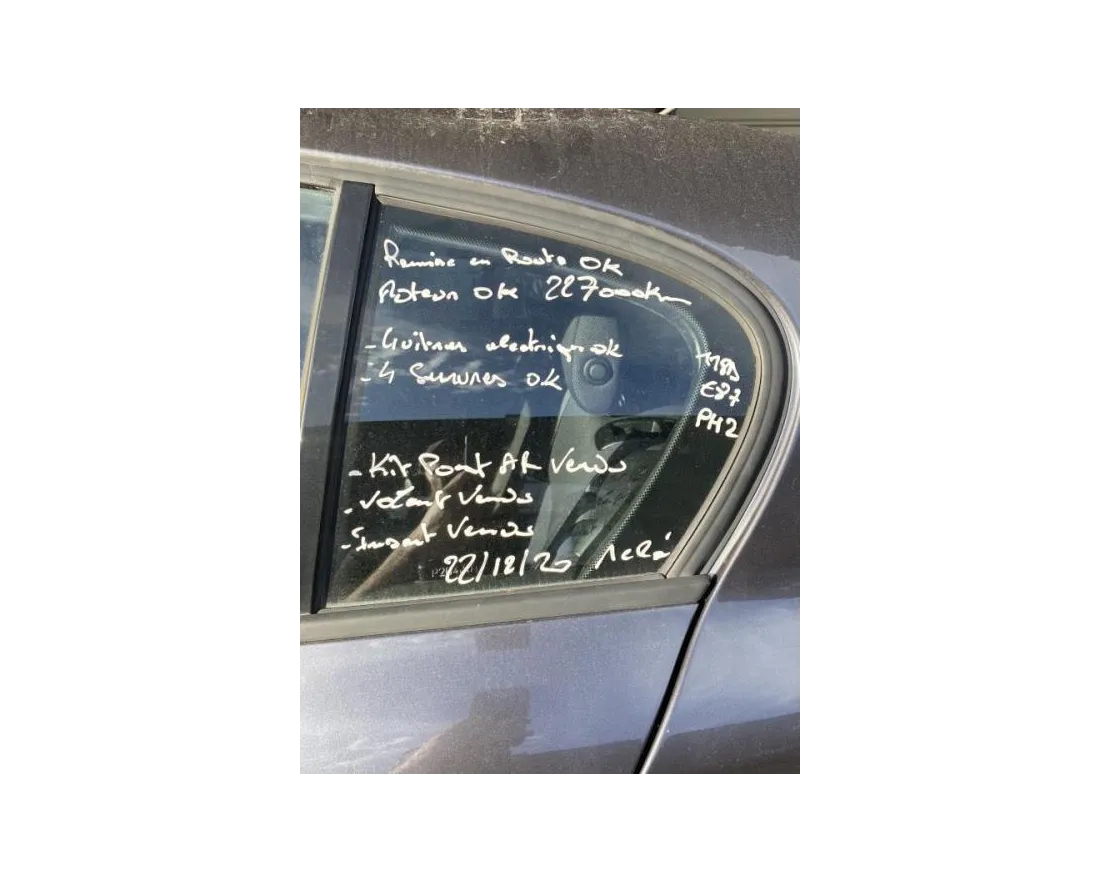 Remise en Route OK
Moteur OK 227000km
- 4 vitres electriques ok
- 4 Serrures OK
118D
E87
PH2
- Kit Pont AR Vendu
- Volant Vendu
- Vendu
22/12/20